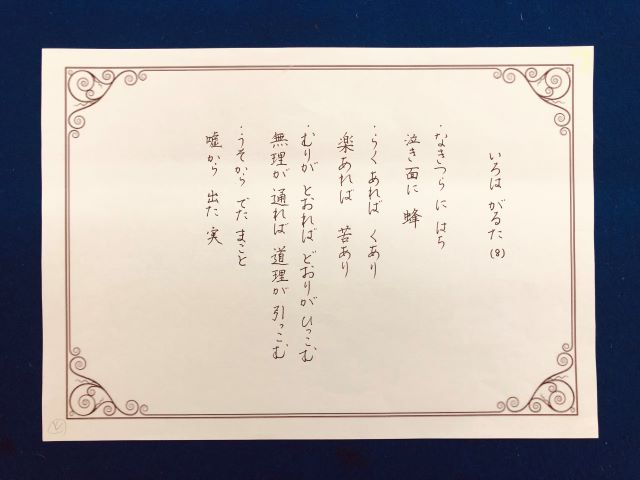 いろは がるた (8)
・なきつら に はち
泣き面に 蜂
・らくあれば くあり
楽あれば 苦あり
・むりが とおれば どおりが ひっこむ
無理が 通れば 道理が 引っこむ
・うそから でた まこと
嘘から 出た 実